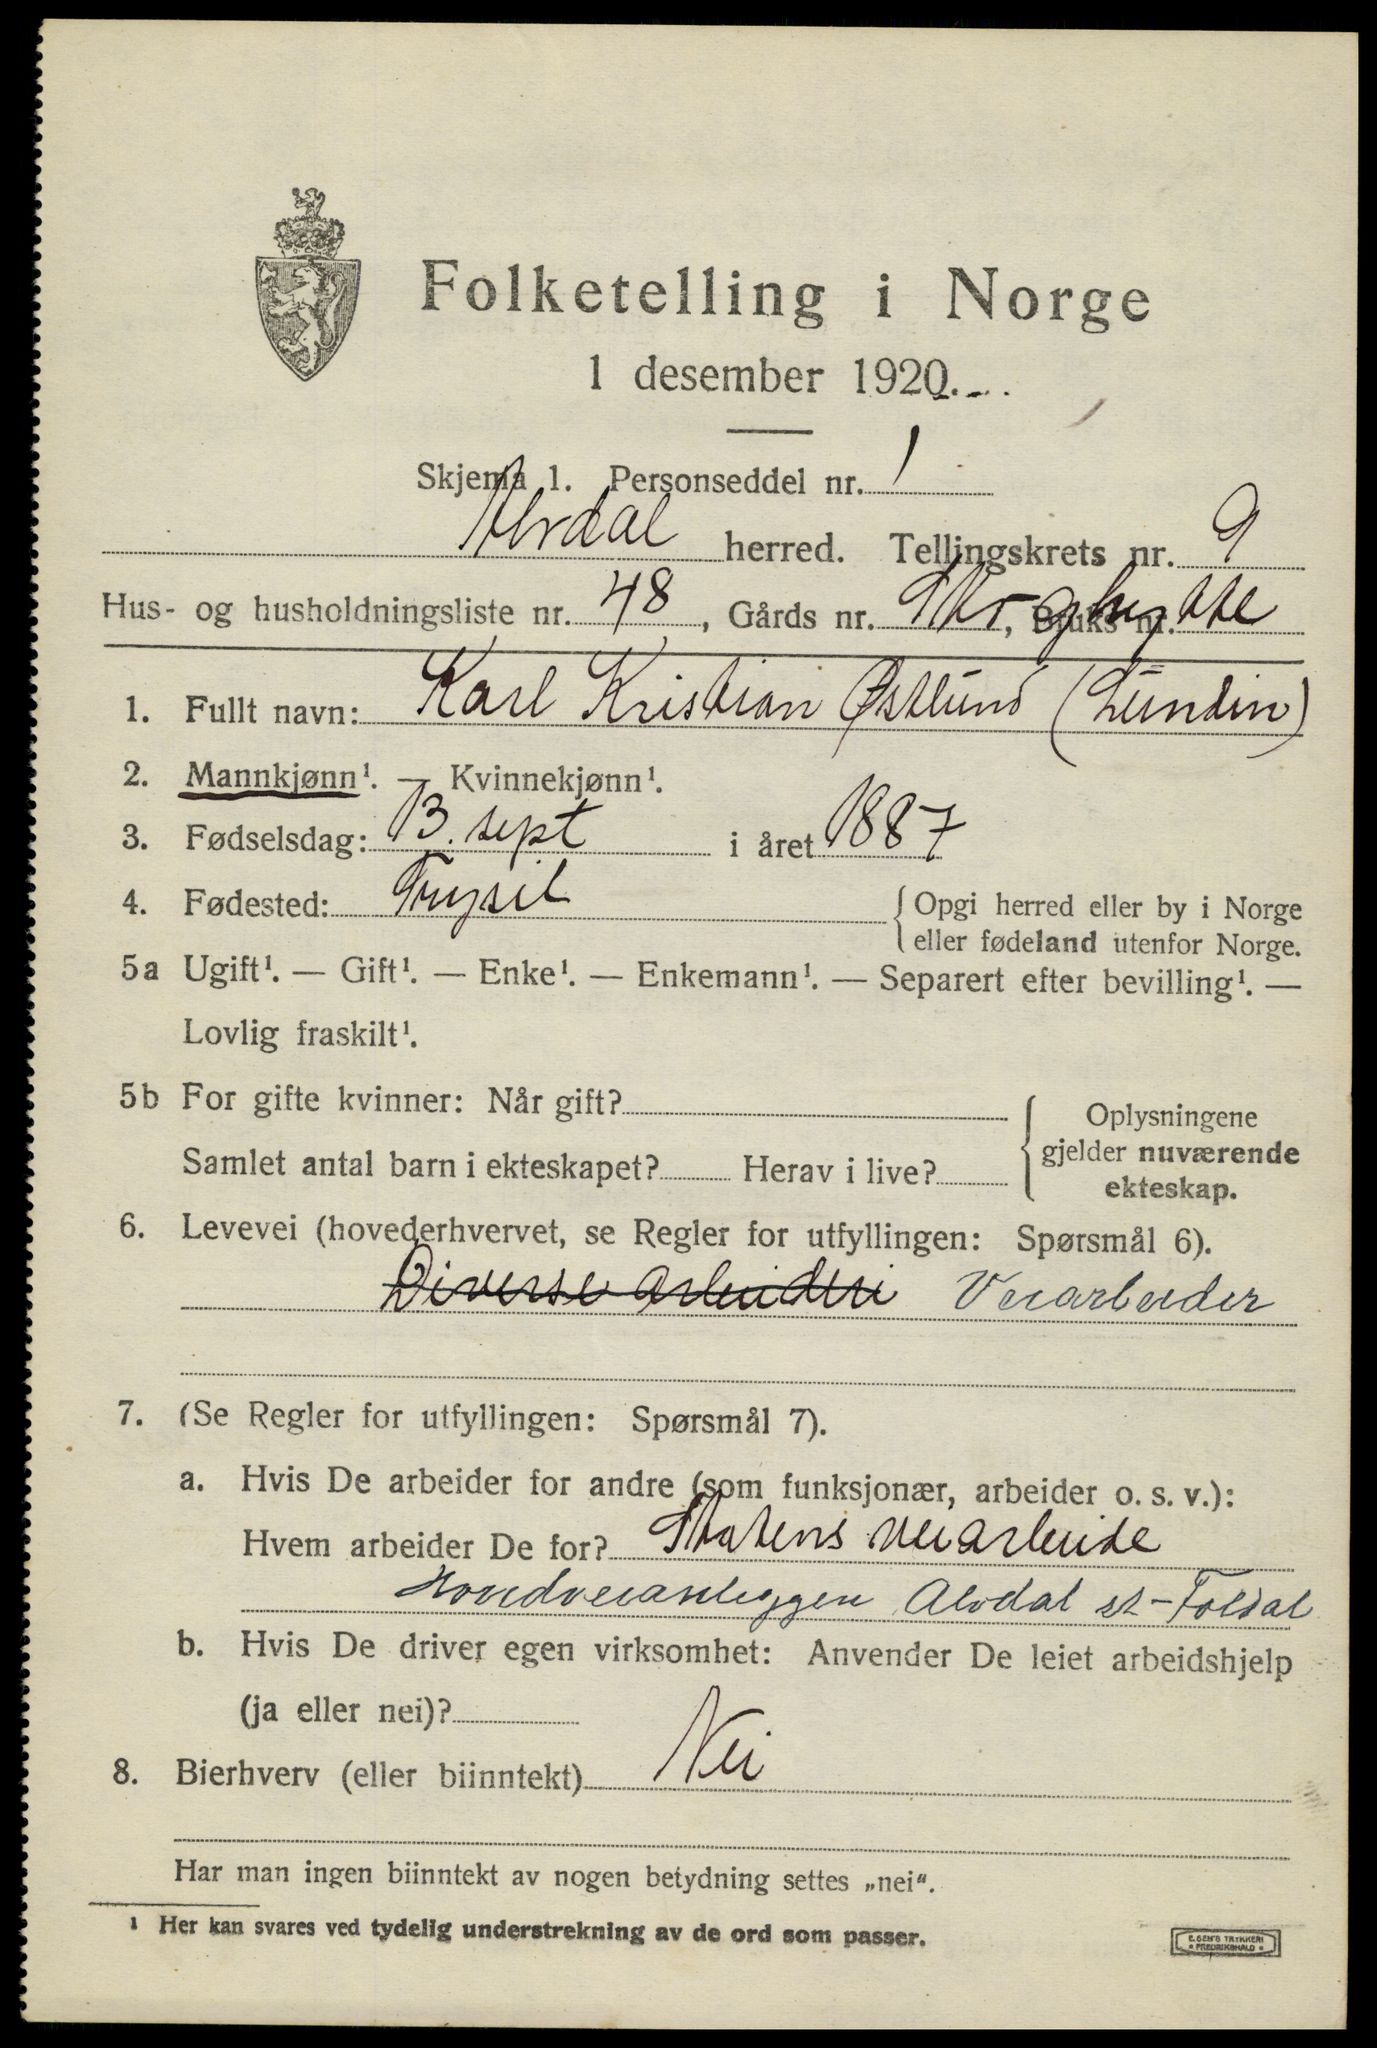 Folketelling i Norge
1 desember 1920.
Skjema 1. Personseddel nr. 1
Alvdal herred. Tellingskrets nr. 9
Hus- og husholdningsliste nr. 48, Gårds nr. , Bruks nr.
1. Fullt navn: Karl Kristian Østlund (Lundin)
2. Mannkjønn¹. — Kvinnekjønn¹.
3. Fødselsdag: 13. sept i året 1887
4. Fødested: Trysil { Opgi herred eller by i Norge
eller fødeland utenfor Norge.
5a Ugift¹. — Gift¹. — Enke¹. — Enkemann¹. — Separert efter bevilling¹. —
Lovlig fraskilt¹.
5b For gifte kvinner: Når gift? { Oplysningene
gjelder nuværende
ekteskap.
Samlet antal barn i ekteskapet? Herav i live?
6. Levevei (hovederhvervet, se Regler for utfyllingen: Spørsmål 6).
Diverse arbeideri Veiarbeider
7. (Se Regler for utfyllingen: Spørsmål 7).
a. Hvis De arbeider for andre (som funksjonær, arbeider o. s. v.):
Hvem arbeider De for? Statens veiarbeide
Hovedveianleggen Alvdal st-Foldal
b. Hvis De driver egen virksomhet: Anvender De leiet arbeidshjelp
(ja eller nei)?
8. Bierhverv (eller biinntekt) Nei
Har man ingen biinntekt av nogen betydning settes „nei“.
¹ Her kan svares ved tydelig understrekning av de ord som passer.
E. SEM'S TRYKKERI
FREDRIKSHALD